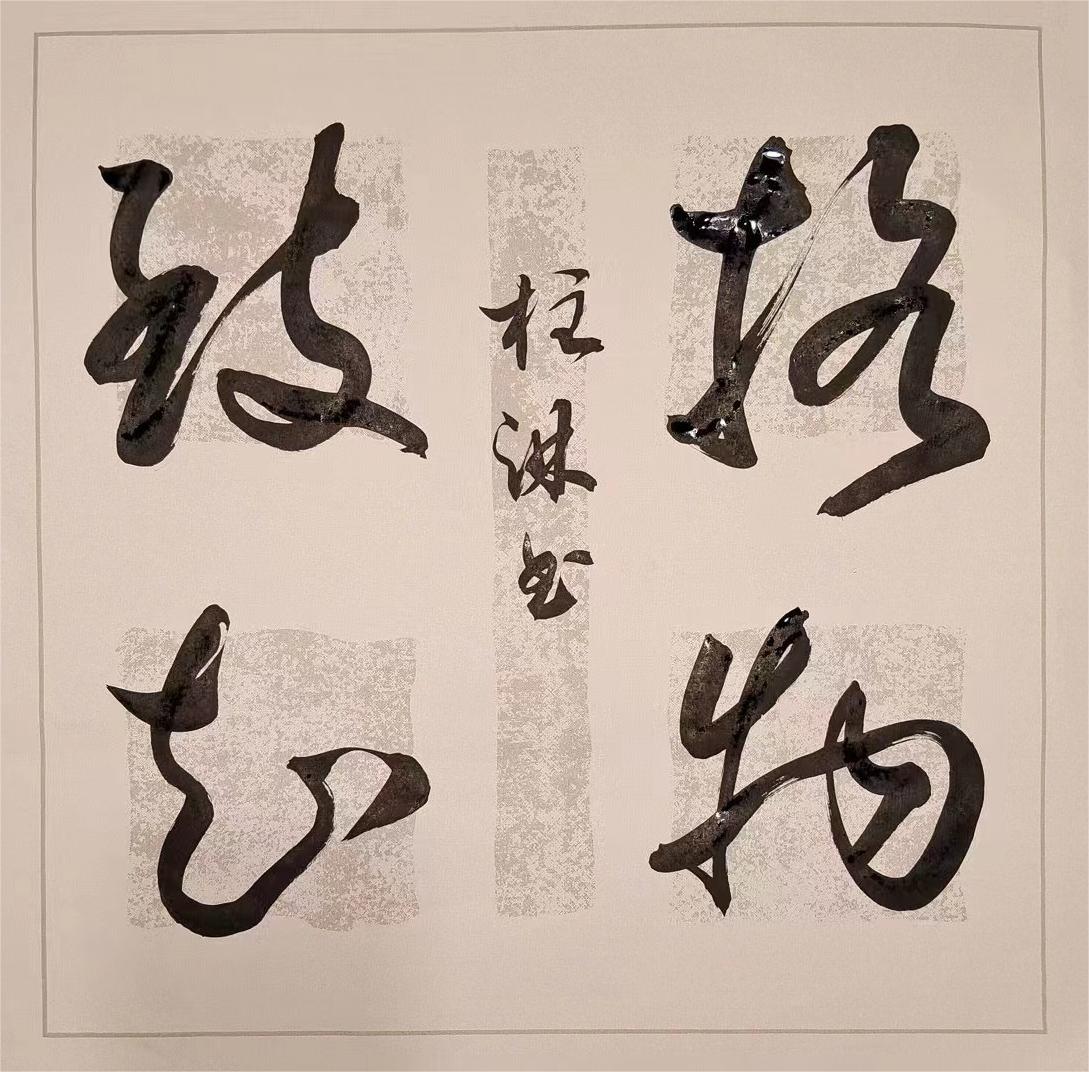 格物
致知
柱淋书